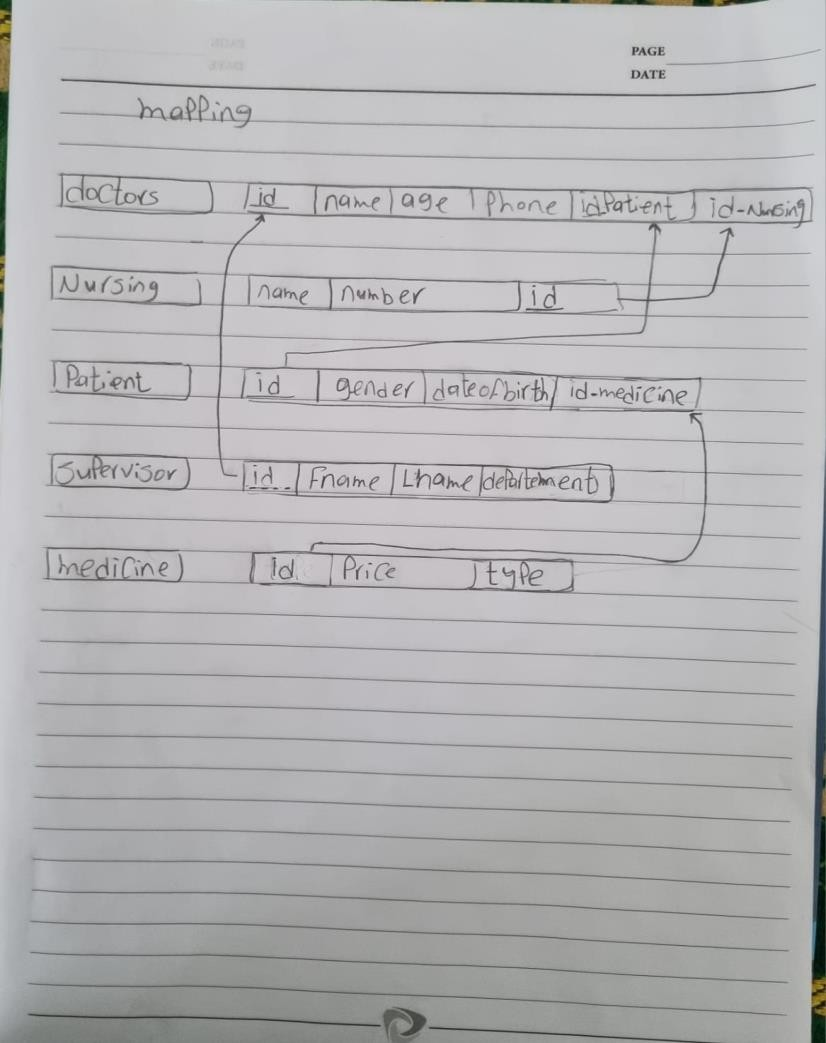 PAGE
DATE
mapping
doctors id name age Phone idPatient id-Nursing
Nursing name number id
Patient id gender dateofbirth id-medicine
Supervisor id Fname Lname departement
medicine Id Price type